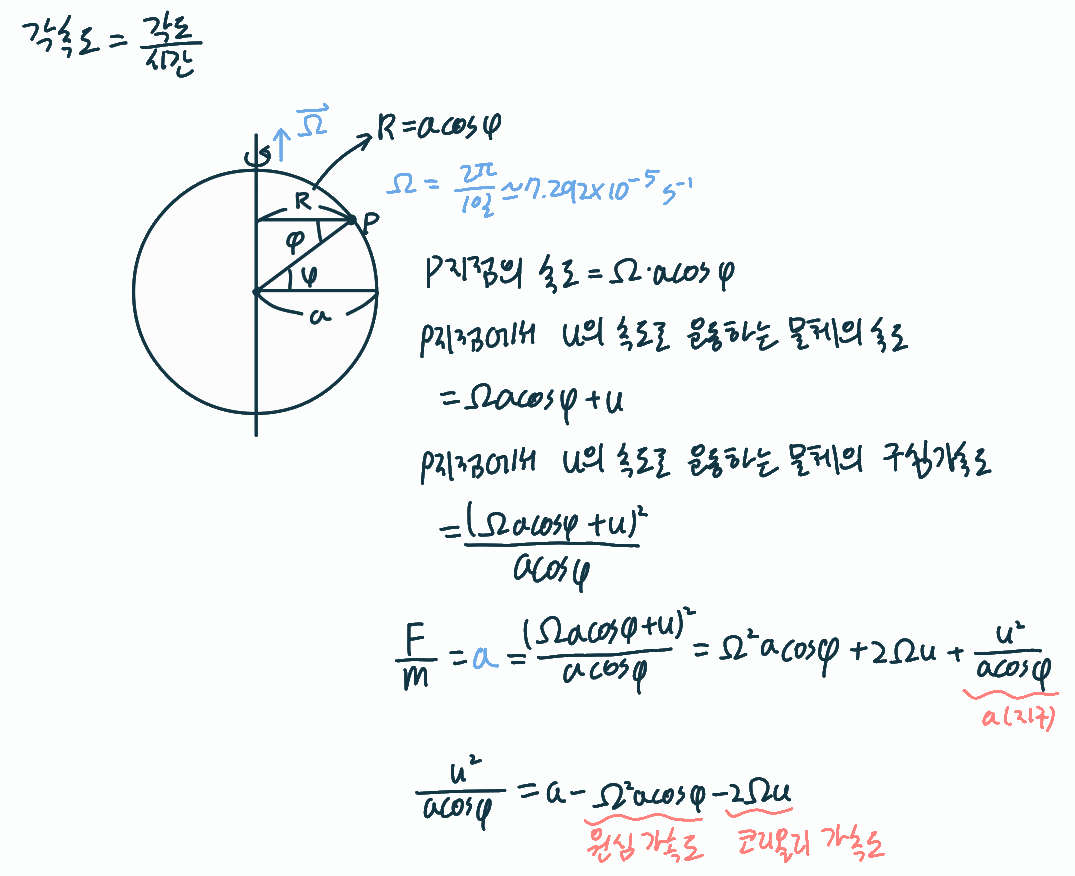 각속도 = 각도/시간
Ω⃗
R = acosφ
Ω = 2π/1일 ≃ 7.292×10⁻⁵ s⁻¹
R
P
φ
φ
a
P지점의 속도 = Ω·acosφ
P지점에서 u의 속도로 운동하는 물체의 속도
= Ωacosφ + u
P지점에서 u의 속도로 운동하는 물체의 구심가속도
= (Ωacosφ + u)²/acosφ
F/m = a = (Ωacosφ+u)²/acosφ = Ω²acosφ + 2Ωu + u²/acosφ
a(지구)
u²/acosφ = a - Ω²acosφ - 2Ωu
원심 가속도 코리올리 가속도